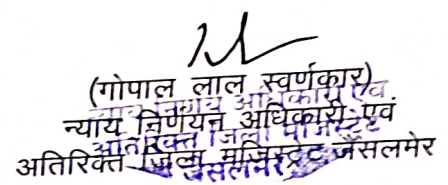 (गोपाल लाल स्वर्णकार)
न्याय निर्णयन अधिकारी एवं
अतिरिक्त जिला मजिस्ट्रेट जैसलमेर